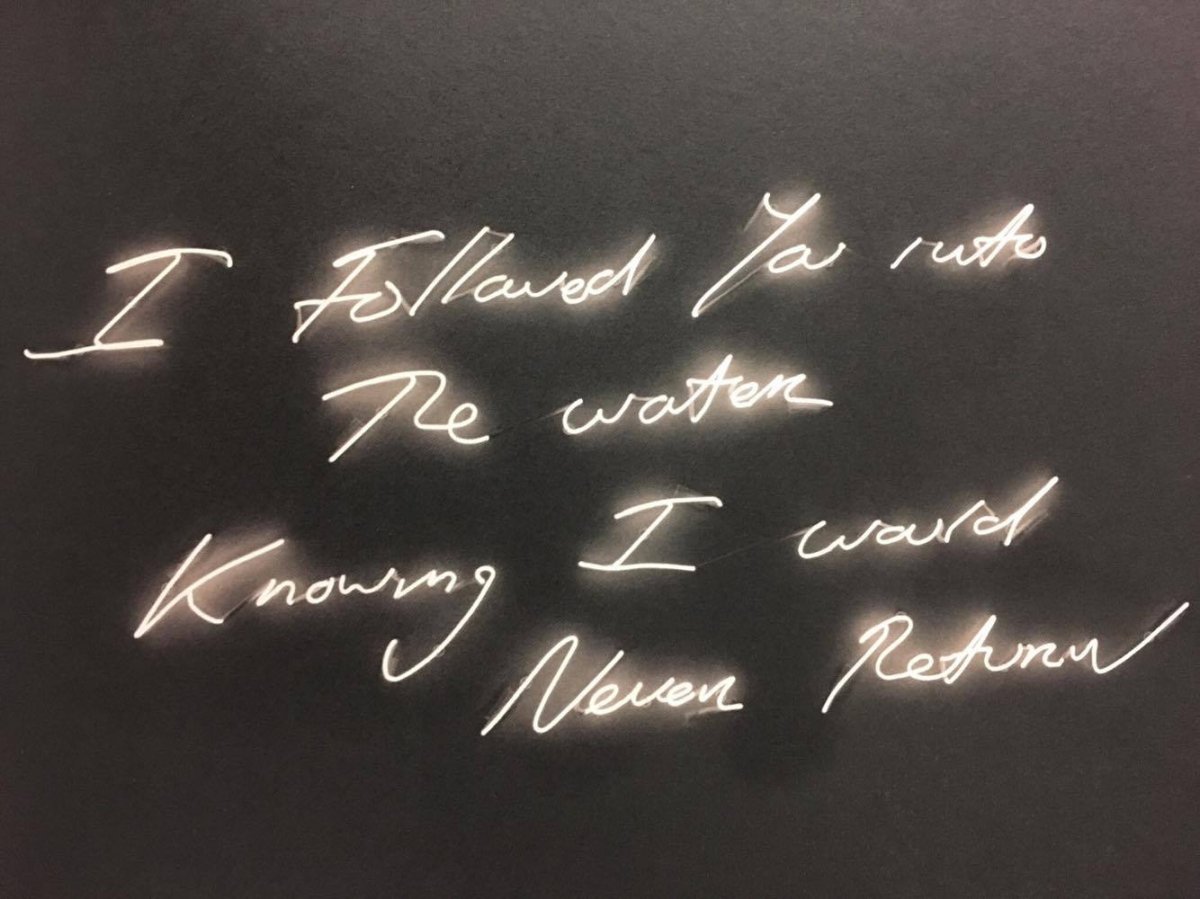 I Followed You into
The water
Knowing I would
Never Return